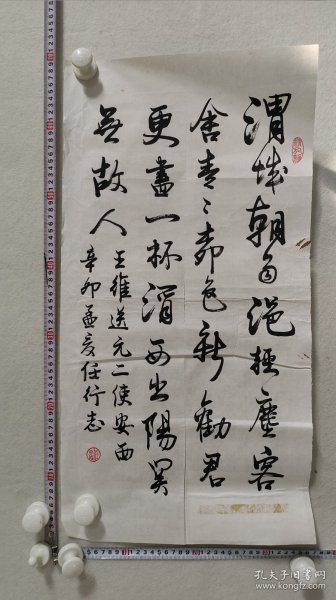 渭城朝雨浥輕塵客
舍青々柳色新勸君
更盡一杯酒西出陽關
無故人
王維送元二使安西
辛卯孟夏任行志
孔夫子旧书网